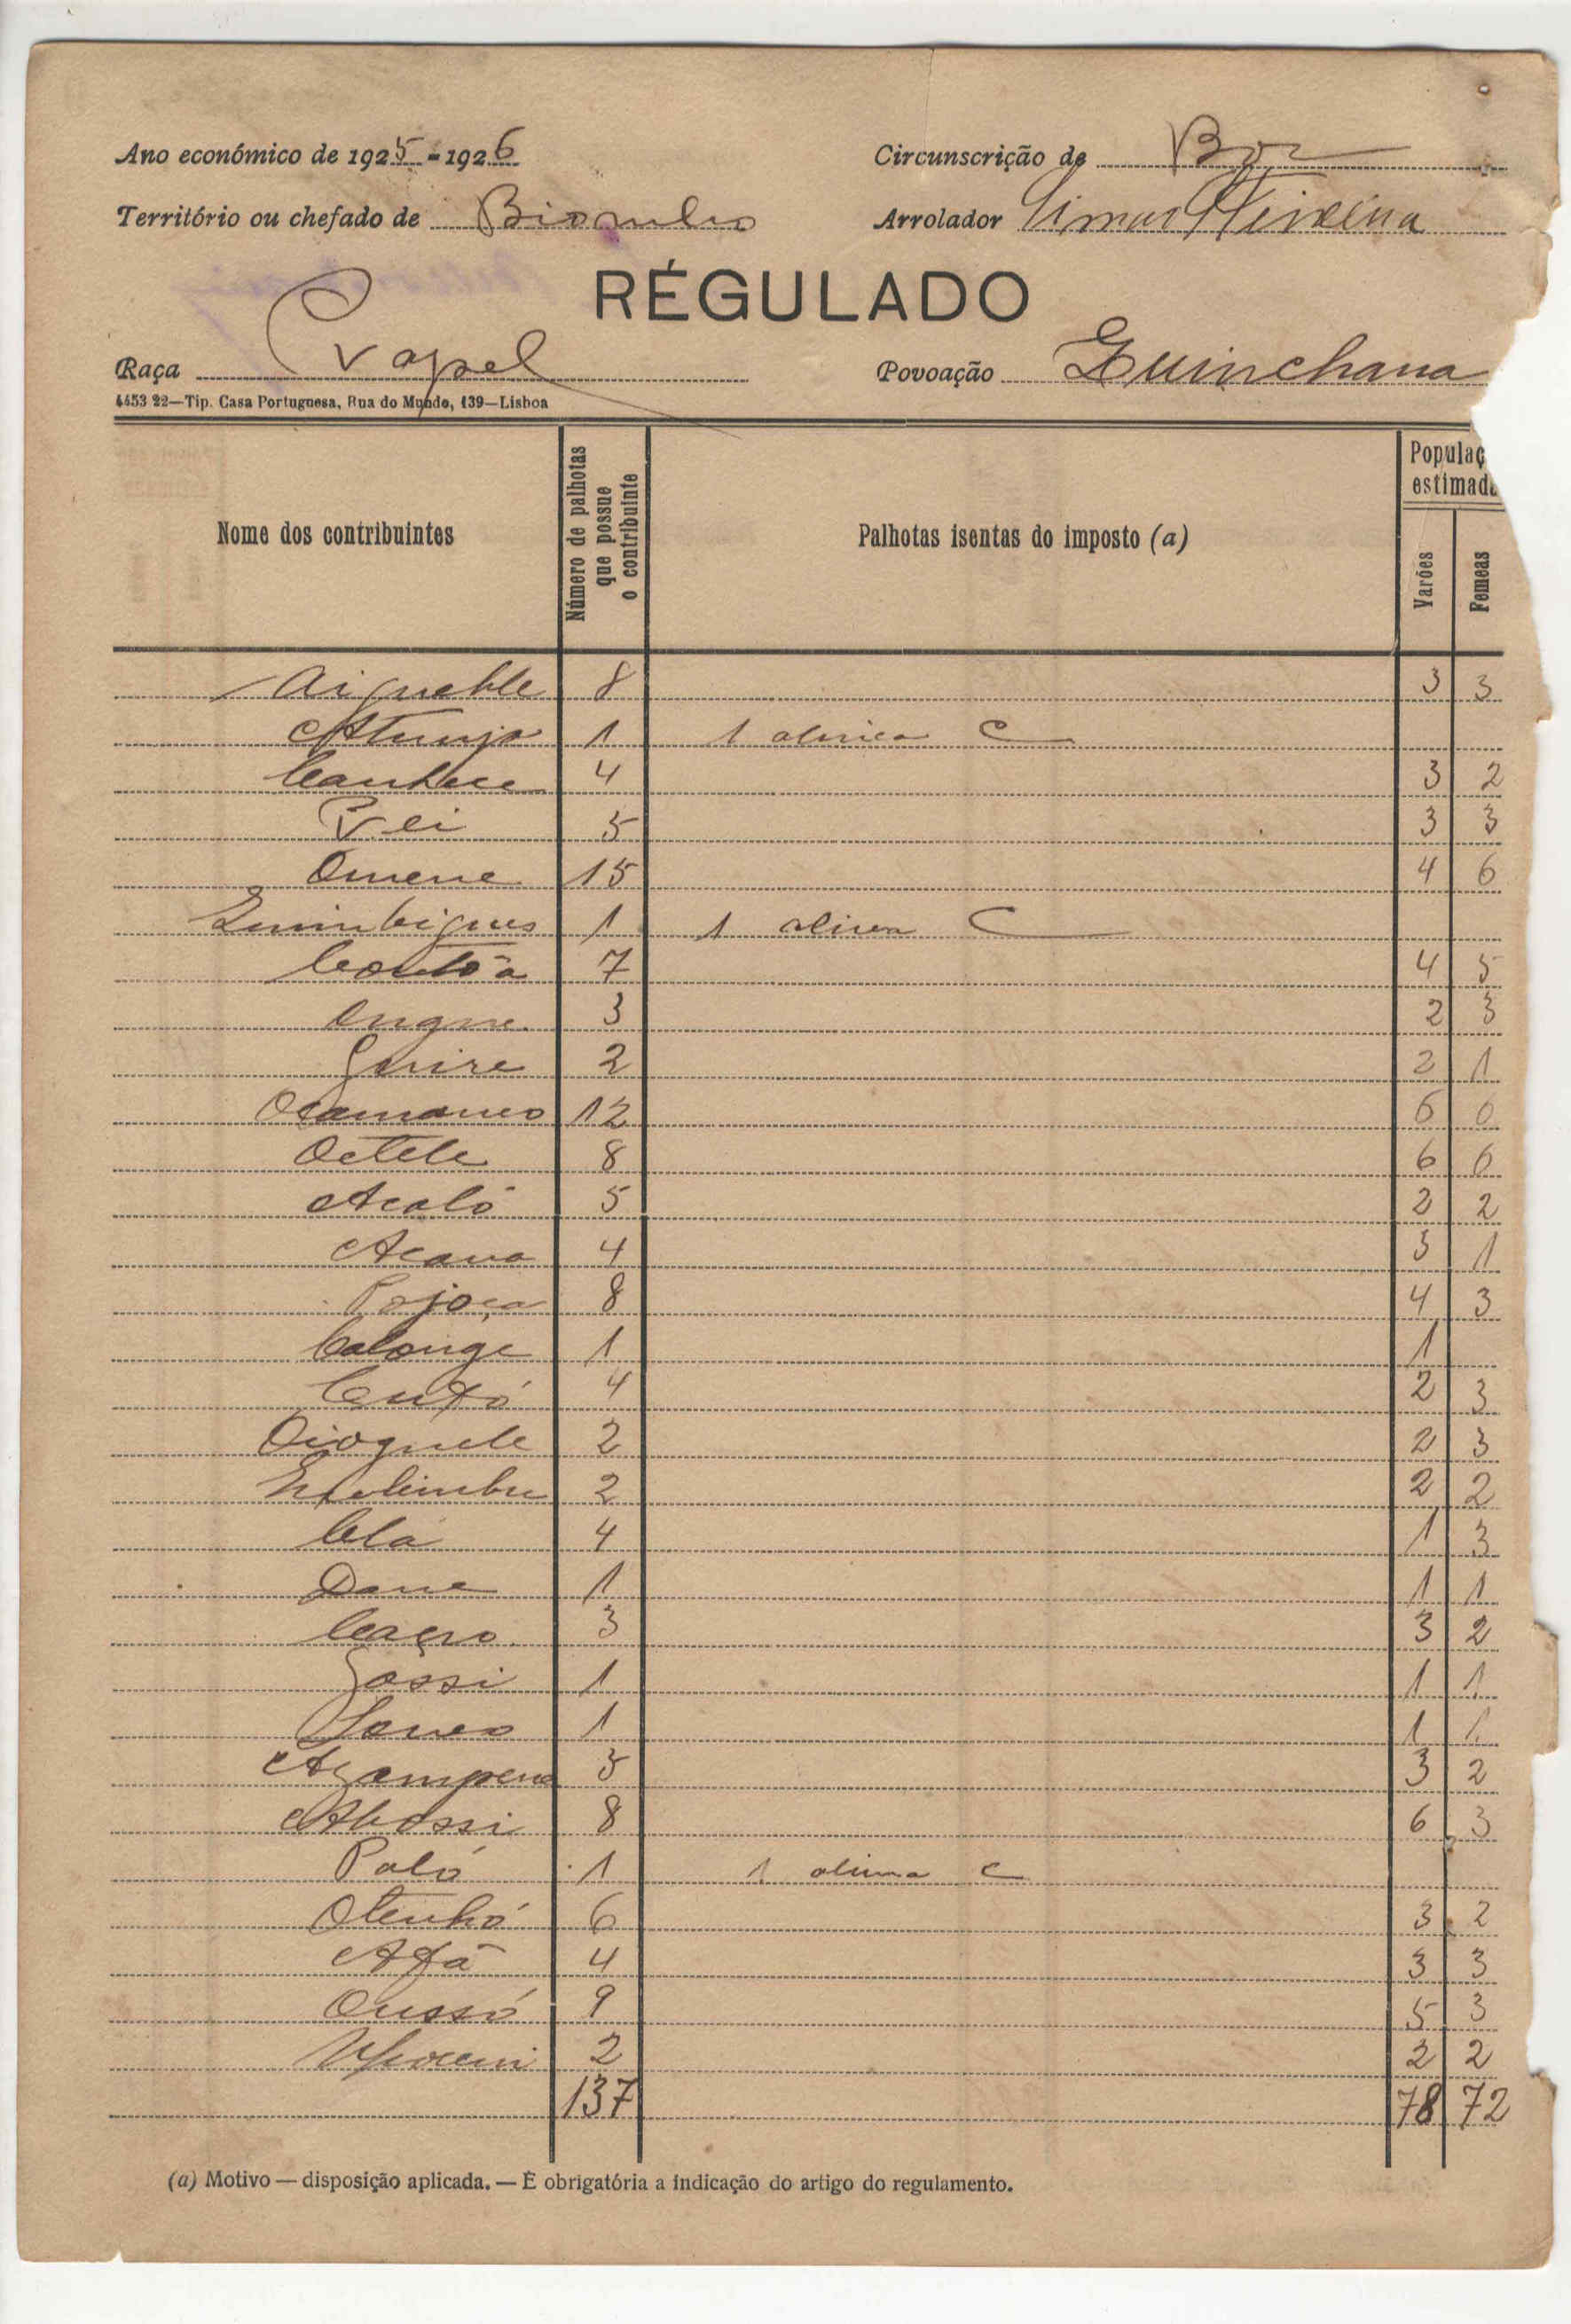 Ano económico de 1925-1926
Circunscrição de Bor
Território ou chefado de Biombo
Arrolador Teixeira
RÉGULADO
Raça Papel
Povoação Quinchana
4453 22—Tip. Casa Portuguesa, Rua do Mundo, 139—Lisboa
Nome dos contribuintes
Número de palhotas que possue o contribuinte
Palhotas isentas do imposto (a)
Populaç
estimada
Varões
Femeas
8 3 3
1 1 alinea C
4 3 2
5 3 3
Omene 15 4 6
1 1 alinea C
7 4 5
Ongue 3 2 3
2 2 1
12 6 6
Octele 8 6 6
Acaló 5 2 2
Acana 4 3 1
Pojoça 8 4 3
Calonge 1 1
4 2 3
Oioguele 2 2 3
2 2 2
Clá 4 1 3
Dane 1 1 1
3 3 2
1 1 1
1 1 1
3 3 2
Abossi 8 6 3
Paló 1 1 alinea C
Otenhó 6 3 2
4 3 3
Oussó 9 5 3
2 2 2
137 78 72
(a) Motivo — disposição aplicada. — É obrigatória a indicação do artigo do regulamento.